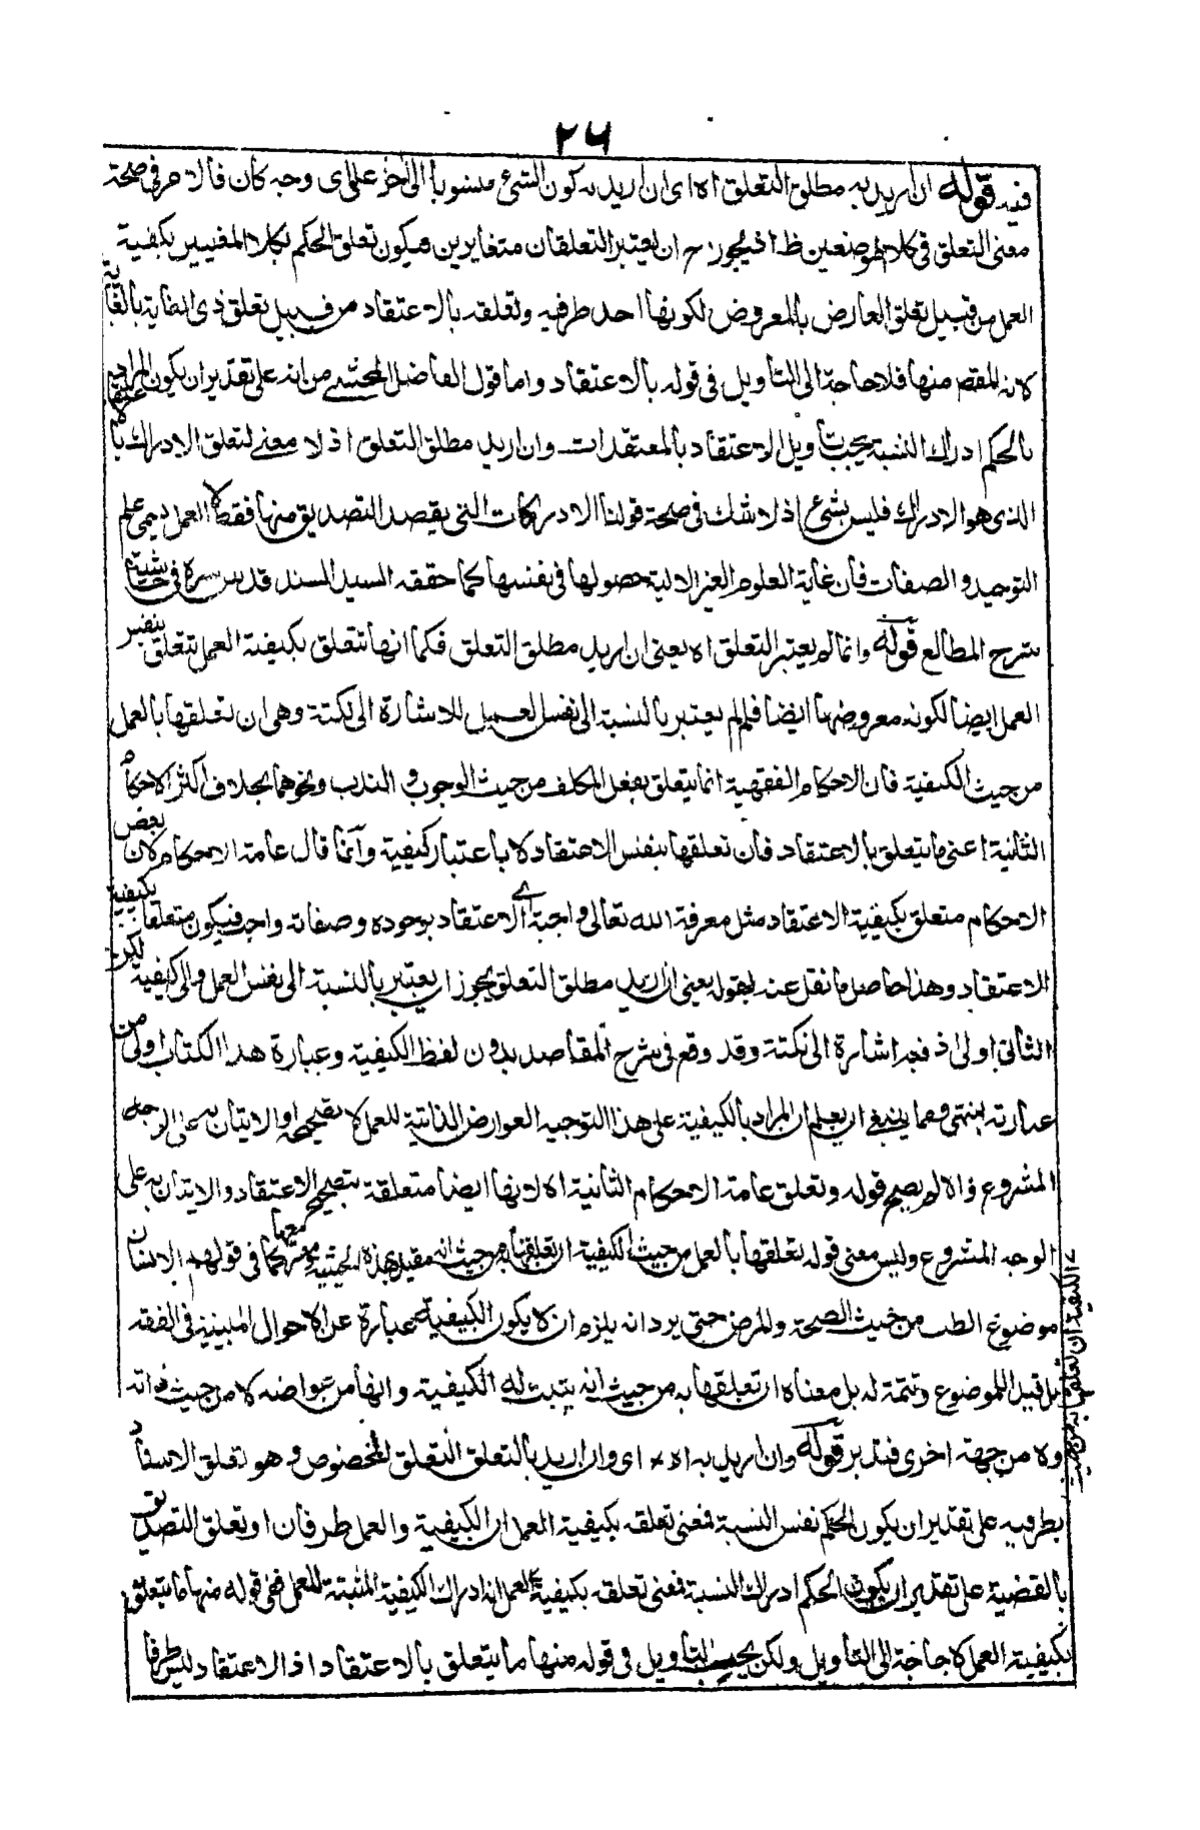 ٢٦
فيه قوله ان اريد به مطلق التعلق اه اى ان اريد به كون الشئ منسوبا الى آخر على اى وجه كان فالامر فى صحة
معنى التعلق فى كلا الموضعين ظ اذ يجوز ح ان يعتبر التعلقان متغايرين فيكون تعلق الحكم بكلا المعنيين بكيفية
العمل من قبيل تعلق العارض بالمعروض لكونها احد طرفيه وتعلقه بالاعتقاد من قبيل تعلق ذى الغاية بالغاية
كانه المقصم منها فلا حاجة الى التاويل فى قوله بالاعتقاد واما قول الفاضل المحشى من انه على تقدير ان يكون المراد
بالحكم ادراك النسبة يجب تاويل الاعتقاد بالمعتقدات وان اريد مطلق التعلق اذ لا معنى لتعلق الادراك بالاعتقاد
الذى هو الادراك فليس بشئ اذ لا شك فى صحة قولنا الادراكات التى يقصد التصديق منها فقط لا العمل يسمى علم
التوحيد والصفات فان غاية العلوم الغير الالية حصولها فى نفسها كما حققه السيد السند قدس سره فى حاشية
شرح المطالع قوله وانما لم يعتبر التعلق اه يعنى ان اريد مطلق التعلق فكما انها تتعلق بكيفية العمل تتعلق بنفس
العمل ايضا لكونه معروضها ايضا فلم لم يعتبر بالنسبة الى نفس العمل للاشارة الى نكتة وهى ان تعلقها بالعمل
من حيث الكيفية فان الاحكام الفقهية انما يتعلق بفعل المكلف من حيث الوجوب و الندب ونحوهما بخلاف اكثر الاحكام
الثانية اعنى ما يتعلق بالاعتقاد فان تعلقها بنفس الاعتقاد لا باعتبار كيفية وانما قال عامة الاحكام لان بعض
الاحكام متعلق بكيفية الاعتقاد مثل معرفة الله تعالى واجبة اى الاعتقاد بوجوده وصفاته واجب فيكون متعلقا بكيفية
الاعتقاد وهذا حاصل ما نقل عنه بقوله يعنى ان اريد مطلق التعلق يجوز ان يعتبر بالنسبة الى نفس العمل والى كيفية لكن
الثانى اولى اذ فيه اشارة الى نكتة وقد وقع فى شرح المقاصد بدون لفظ الكيفية وعبارة هذا الكتاب اولى من
عبارته انتهى ومما ينبغى ان يعلم ان المراد بالكيفية على هذا التوجيه العوارض الذاتية للعمل لا تصحيحه والاتيان به على الوجه
المشروع والا لم يصح قوله وتعلق عامة الاحكام الثانية اه لانها ايضا متعلقة بتصحيح الاعتقاد والاتيان به على
الوجه المشروع وليس معنى قوله تعلقها بالعمل من حيث الكيفية ان تعلقها به من حيث انه مقيد بهذه الحيثية كما فى قولهم الانسان
موضوع الطب من حيث الصحة والمرض حتى يرد انه يلزم ان لا يكون الكيفية عبارة عن الاحوال المبينة فى الفقه
بل قيد للموضوع وتتمة له بل معناه ان تعلقها به من حيث انه يثبت له الكيفية وانها من عوارضه لا من حيث ذاته
ولا من جهة اخرى فتدبر قوله وان اريد به اه اى وان اريد بالتعلق التعلق المخصوص وهو تعلق الاسناد
بطرفيه على تقدير ان يكون الحكم نفس النسبة فمعنى تعلقه بكيفية العمل ان الكيفية والعمل طرفان او تعلق التصديق
بالقضية على تقدير ان يكون الحكم ادراك النسبة فمعنى تعلقه بكيفية العمل انه ادراك الكيفية المثبتة للعمل ففى قوله منها ما يتعلق
بكيفية العمل لا حاجة الى التاويل ولكن يجب التاويل فى قوله منها ما يتعلق بالاعتقاد اذ الاعتقاد ليس طرفا